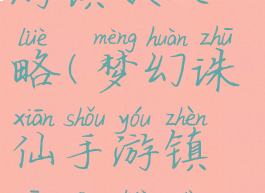 lüè mèng huàn zhū
略(梦幻诛
xiān shǒu yóu zhèn
仙手游镇